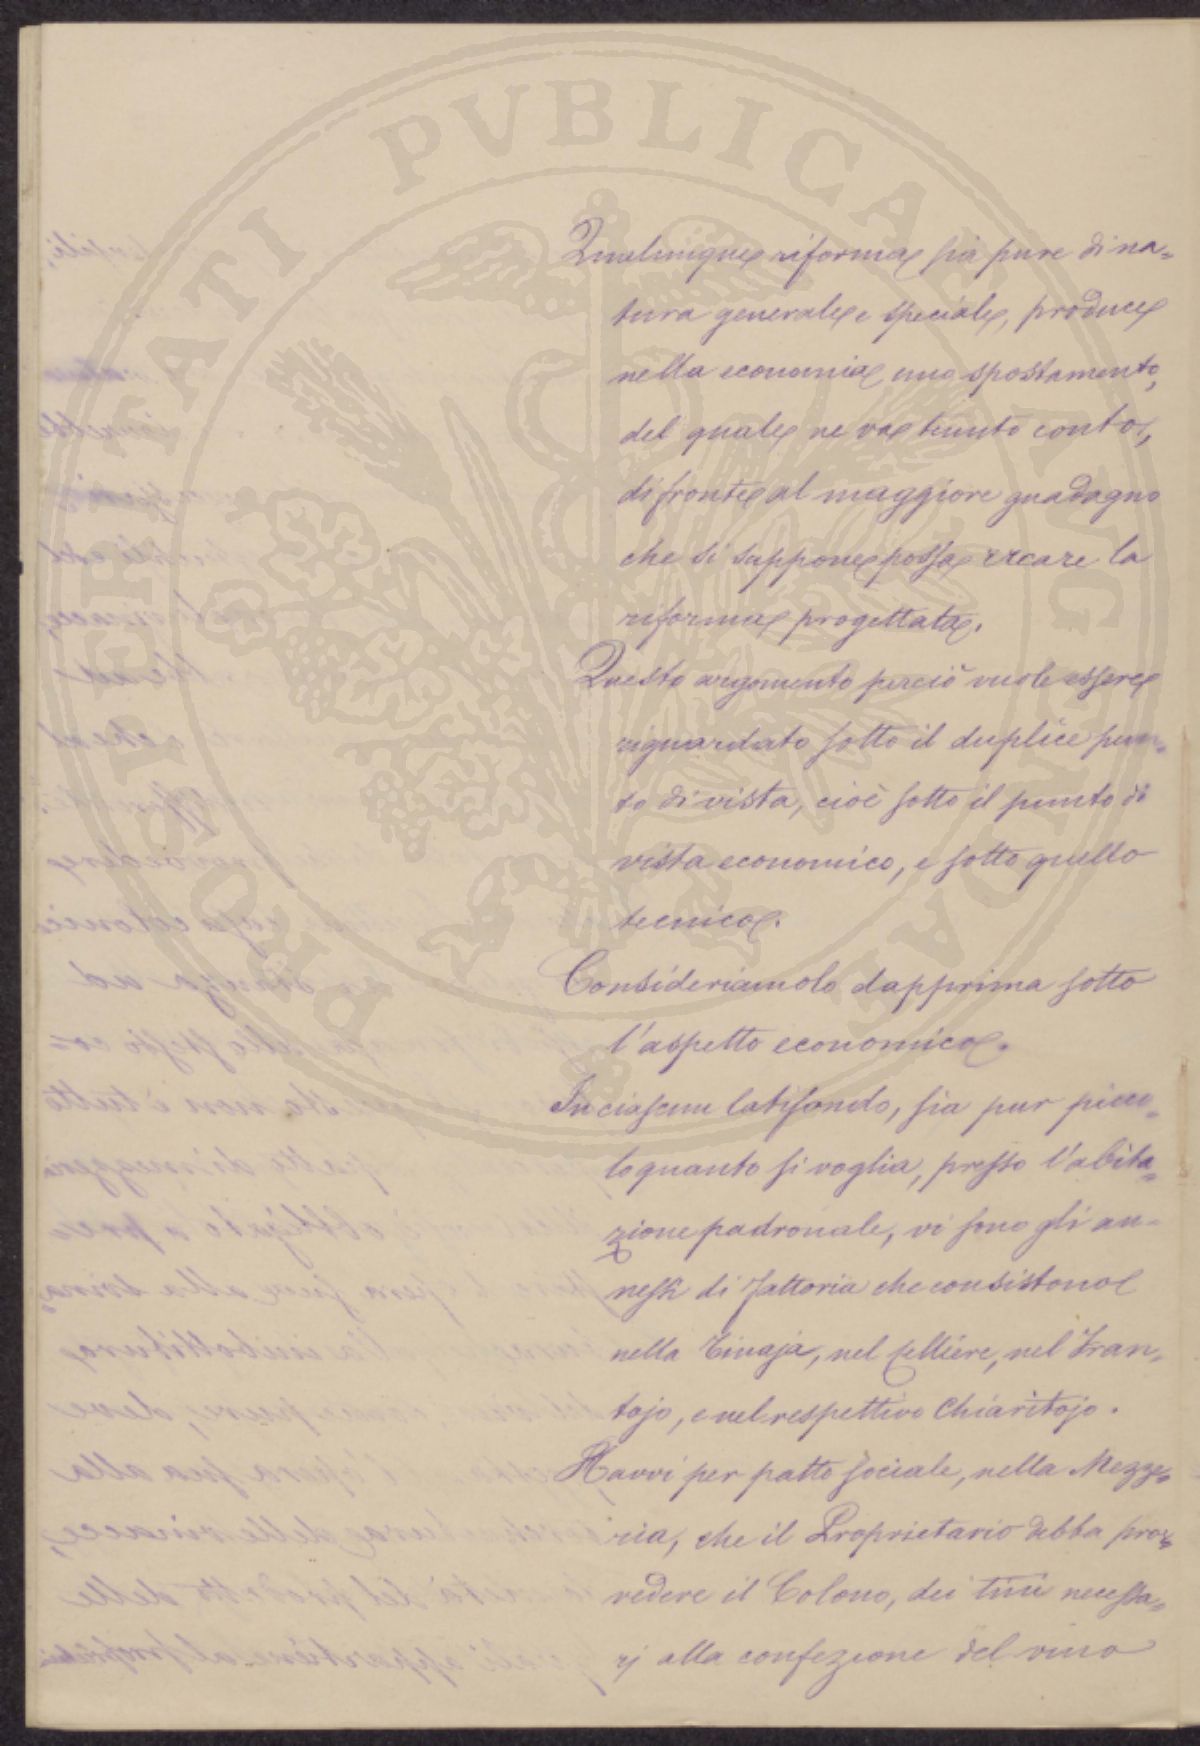 Qualunque riforma sia pure di na-
tura generale e speciale, produce
nella economia uno spostamento,
del quale ne va tenuto conto,
di fronte al maggiore guadagno
che si suppone possa recare la
riforma progettata.
Questo argomento perciò vuole essere
riguardato sotto il duplice pun-
to di vista, cioè sotto il punto di
vista economico, e sotto quello
tecnico.
Consideriamolo dapprima sotto
l'aspetto economico.
In ciascun latifondo, sia pur picco-
lo quanto si voglia, presso l'abita-
zione padronale, vi sono gli an-
nessi di Fattoria che consistono
nella Tinaja, nel Celliere, nel Fran-
tojo, e nel respettivo Chiaritojo.
Havvi per patto sociale, nella Mezze-
ria, che il Proprietario debba prov-
vedere il Colono, dei tini necessa-
rj alla confezione del vino
PROSPERITATI PVBLICAE AVGENDAE